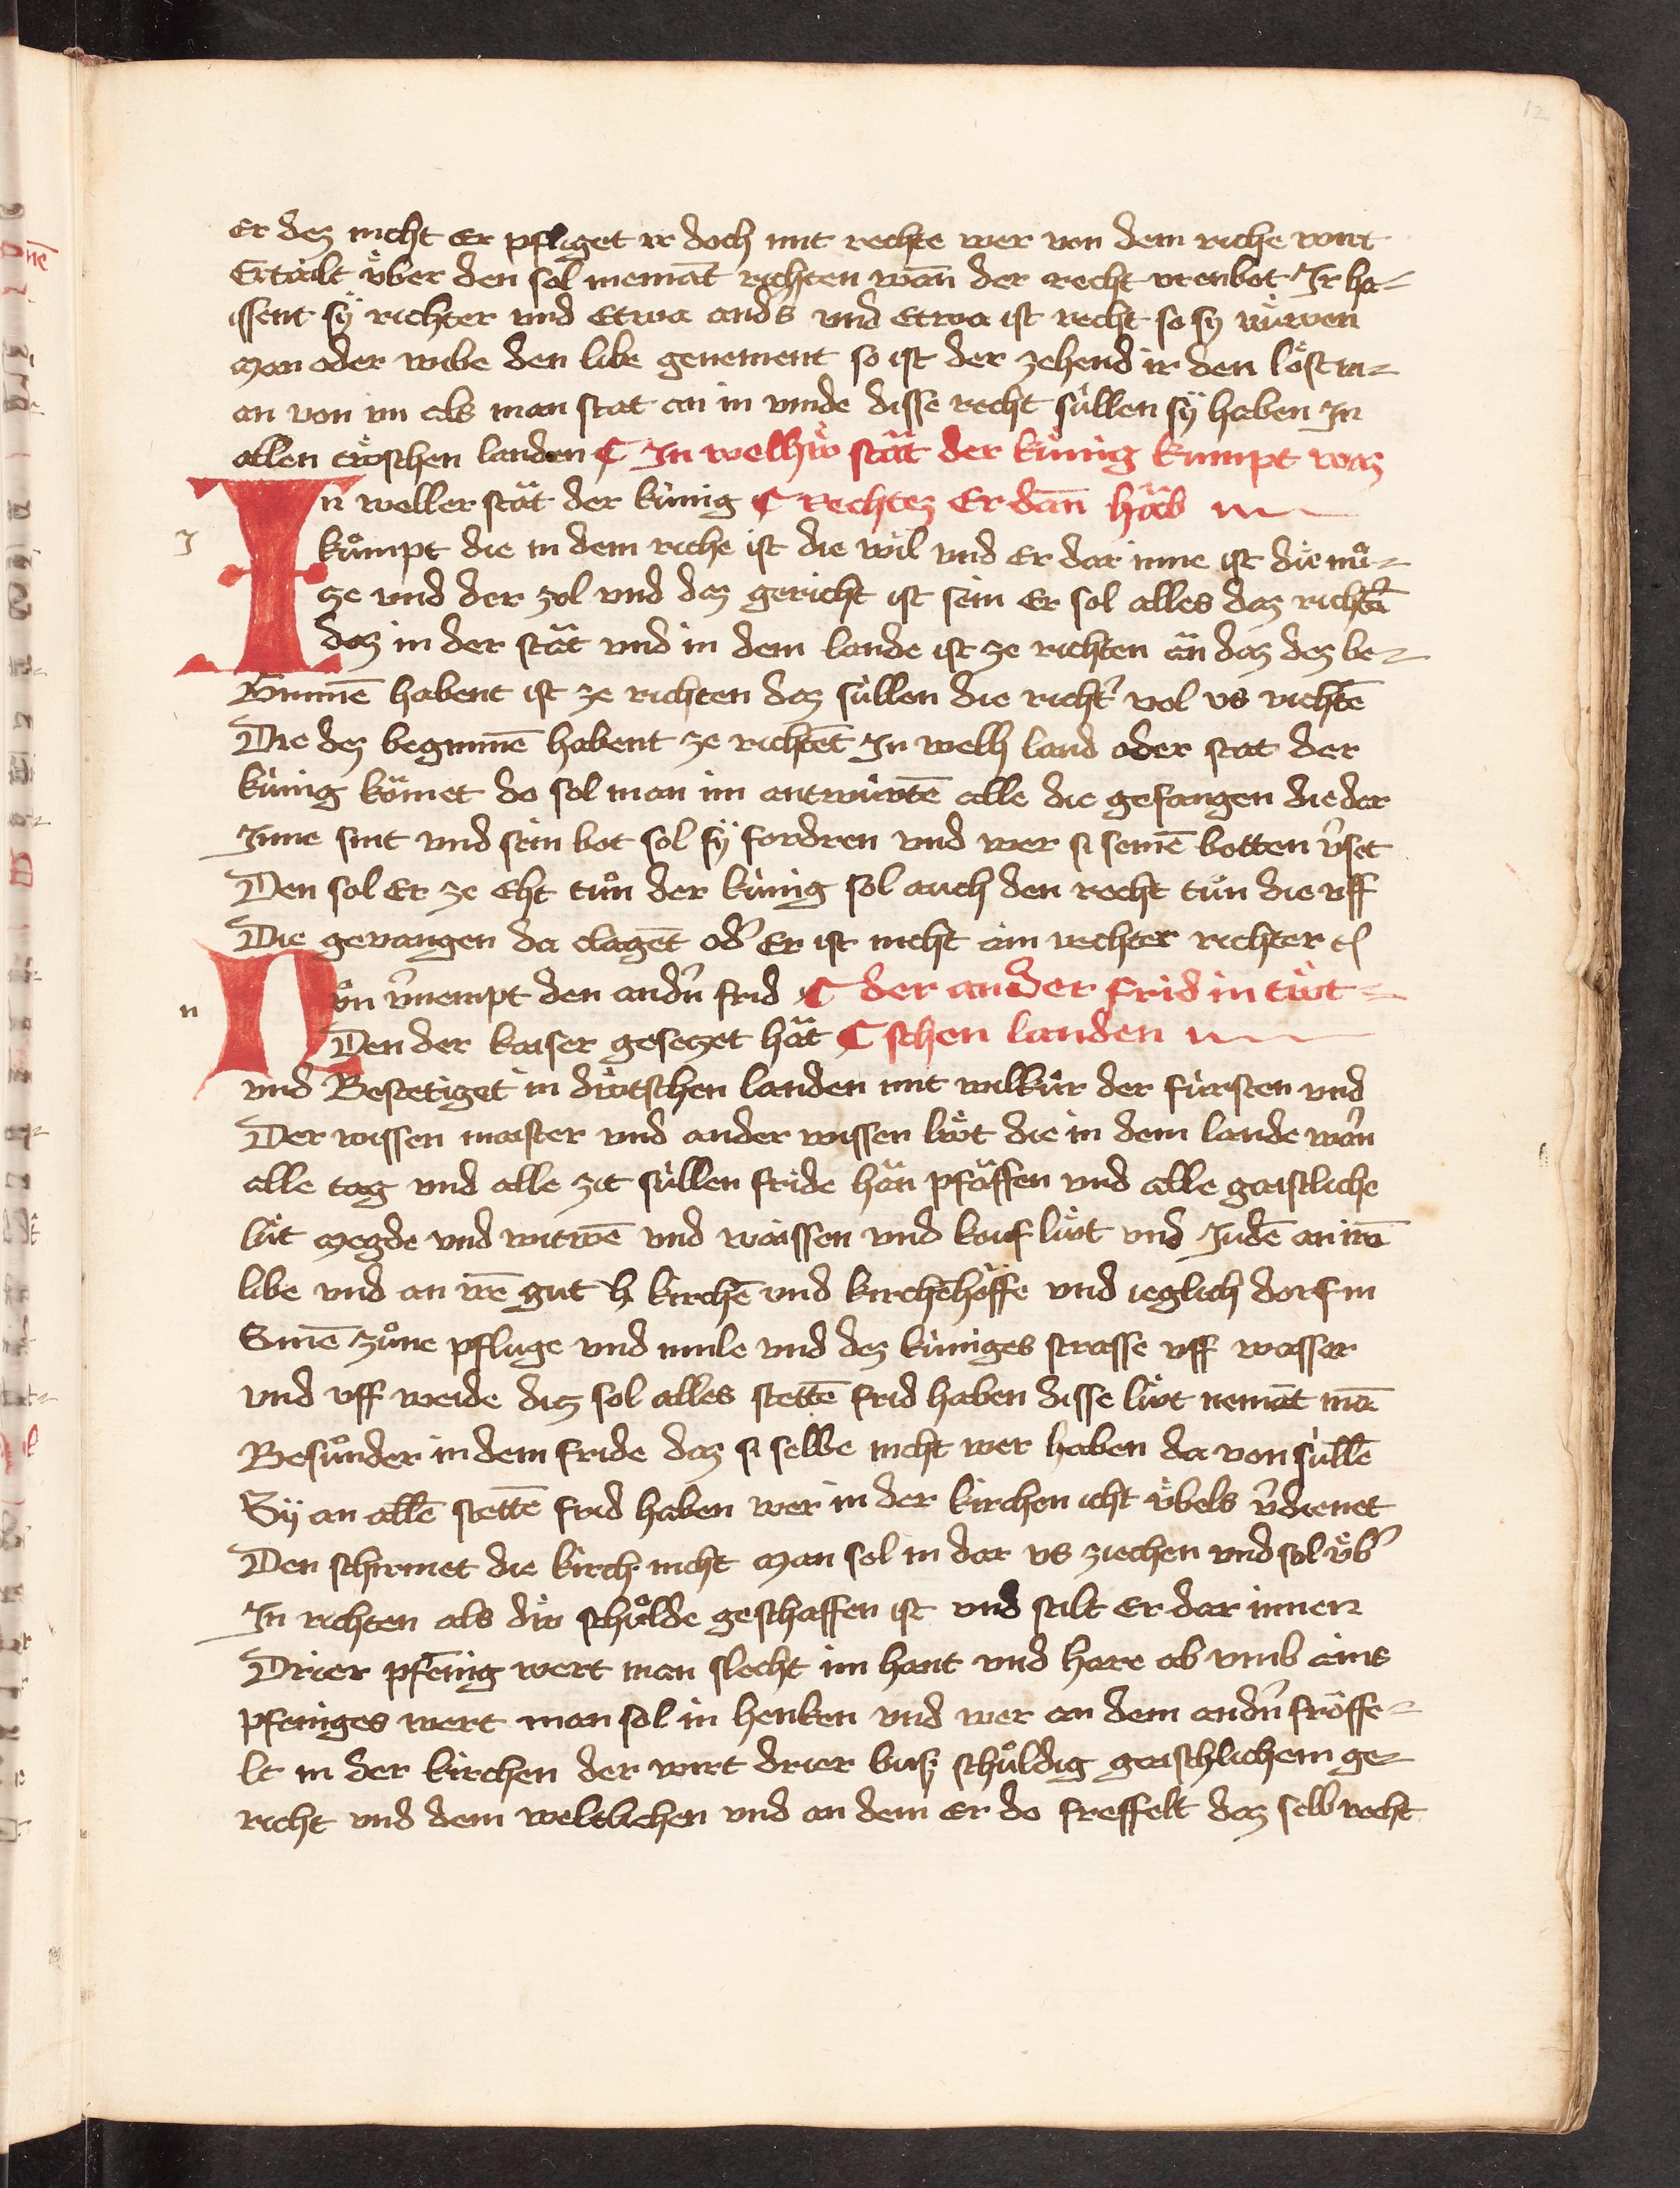 12
er dez nicht er pfliget ir doch mit rechte wer von dem riche wirt
Ertailt v̈ber den sol niemāt richten wān der recht vrenbot Ir ha-
issent sÿ richter vnd etwa and's vnd etwa ist recht so sy
man oder wibe den libe genement so ist der zehend ir den
an von im als man stat an in vinde disse recht sùllen sÿ haben In
allen landen ¶ In stät der kùnig kumpt waz
In weller stät der kùnig ¶ rechtez Er dān häb
kůmpt die in dem riche ist die wil vnd er dar inne ist die mů-
ze vnd der zol vnd daz gericht ist sein er sol alles daz richtē
daz in der stät vnd in dem lande ist ze richten än daz dez be-
ginnē habent ist ze richten daz sùllen die richt' vol vs richtē
Die dez beginnē habent ze richtēt In welh land oder stat der
kùnig kömet do sol man im antwùrtē alle die gefangen die dar
Inne sint vnd sein bot sol sÿ fordren vnd wer si seinē botten v'set
Den sol er ze eht tůn der kùnig sol auch den recht tůn die vff
Die gevangen da clagēt od' er ist nicht ain rechter richter
Nůn v'nempt den and'n frid ¶ der ander frid in tùt-
Den der kaiser gesetzet hät ¶ schen landen
vnd Bestetiget in dùtschen landen mit wilkůr der fùrsten vnd
Der wissen maister vnd ander wissen lùt die in dem lande wa'n
alle tag vnd alle zit sùllen fride hän pfäffen vnd alle gaistliche
lùt megde vnd witwē vnd waissen vnd kouf lùt vnd Judē an irē
libe vnd an irē gut kirchē vnd kirchēhöffe vnd ieglich dorf in
Sinē zůne pfluge vnd mule vnd dez kùniges strasse vff wasser
vnd vff weide diz sol alles stettē frid haben disse lùt nemāt mā
Besůnder in dem fride daz si selbe nicht wer haben da von sùllē
Sÿ an allē stettē frid haben wer in der kirchen icht v̈bels v'dienet
Den schirmet die kirch nicht man sol in dar vs ziechen vnd sol v̈b'
In richten als diw schůlde geschaffen ist vnd stilt er dar innen
Drier pfēnig wert man slecht im hant vnd hare ab vmb ains
pfeniges wert man sol in henken vnd wer an dem and'n fröffe-
lt in der kirchen der wirt drier bůsz schůldig gaischlichem ge-
richt vnd dem weltlichen vnd an dem er do freffelt daz selb recht